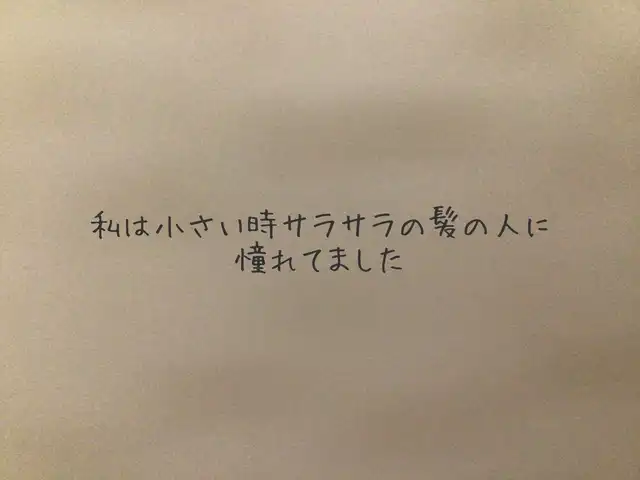 私は小さい時サラサラの髪の人に
憧れてました